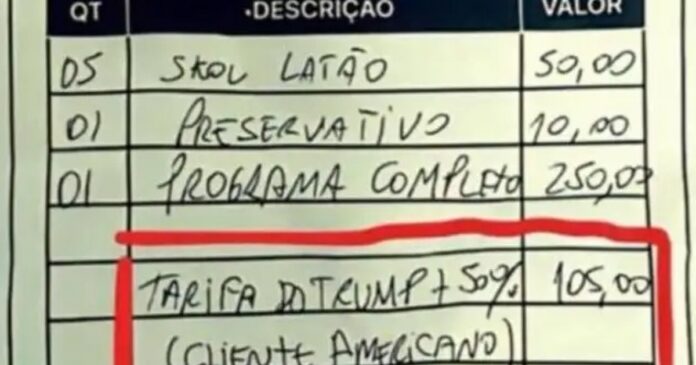 QT DESCRIÇÃO VALOR
05 SKOL LATÃO 50,00
01 PRESERVATIVO 10,00
01 PROGRAMA COMPLETO 250,00
TARIFA DO TRUMP + 50% 105,00
(CLIENTE AMERICANO)